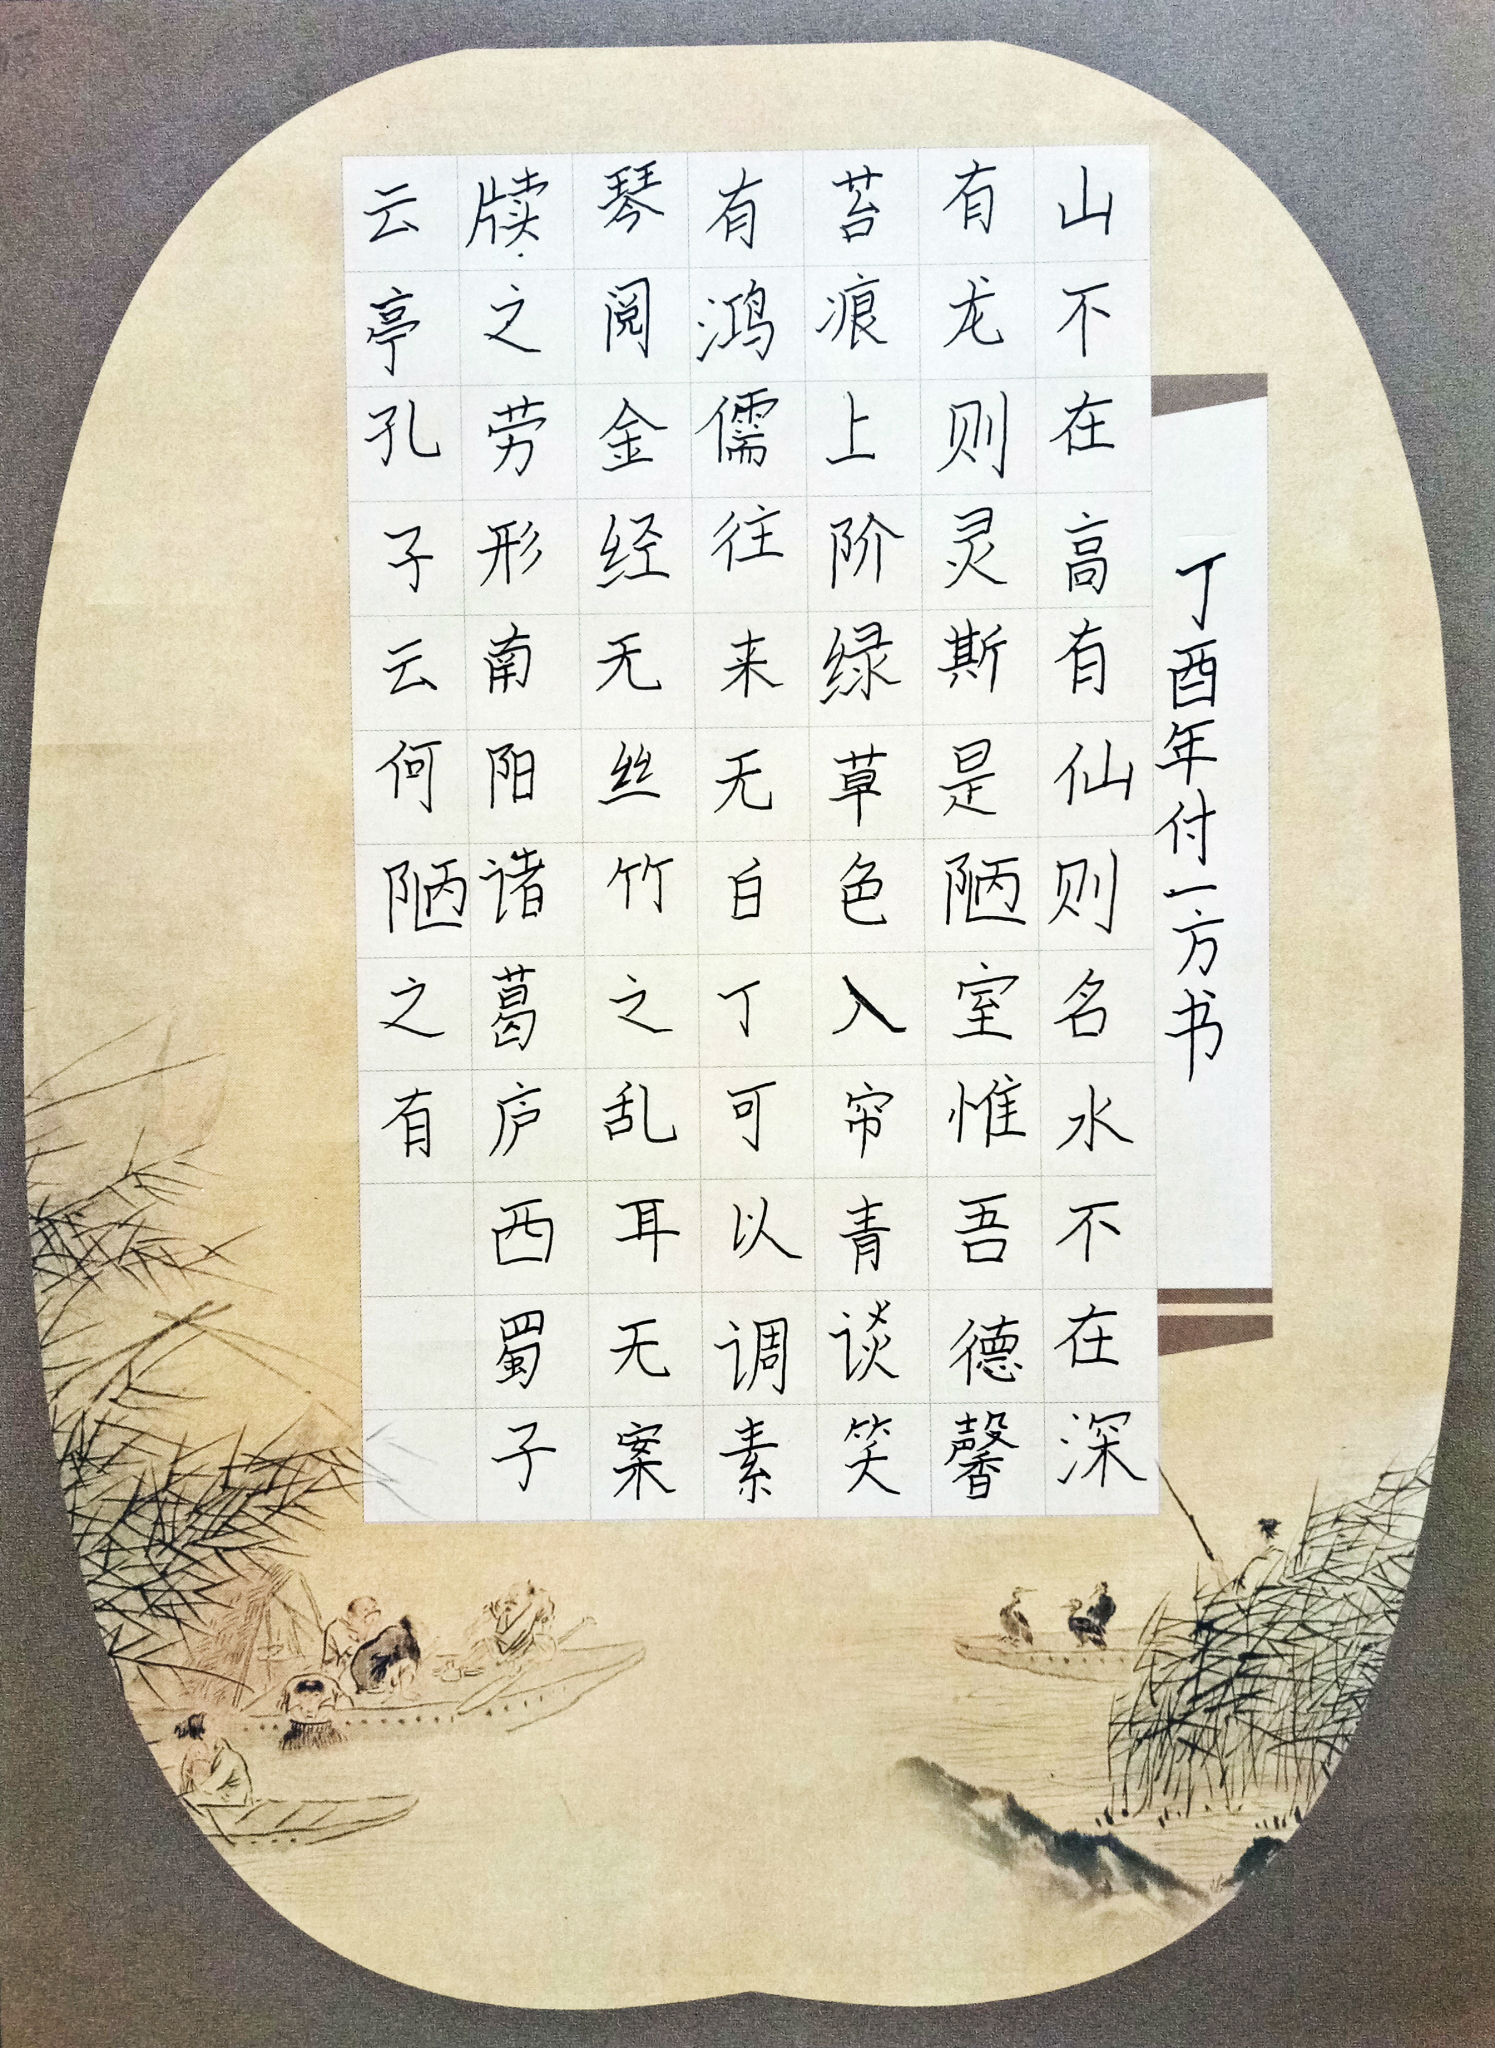 丁酉年付一方书
山不在高有仙则名水不在深
有龙则灵斯是陋室惟吾德馨
苔痕上阶绿草色入帘青谈笑
有鸿儒往来无白丁可以调素
琴阅金经无丝竹之乱耳无案
牍之劳形南阳诸葛庐西蜀子
云亭孔子云何陋之有